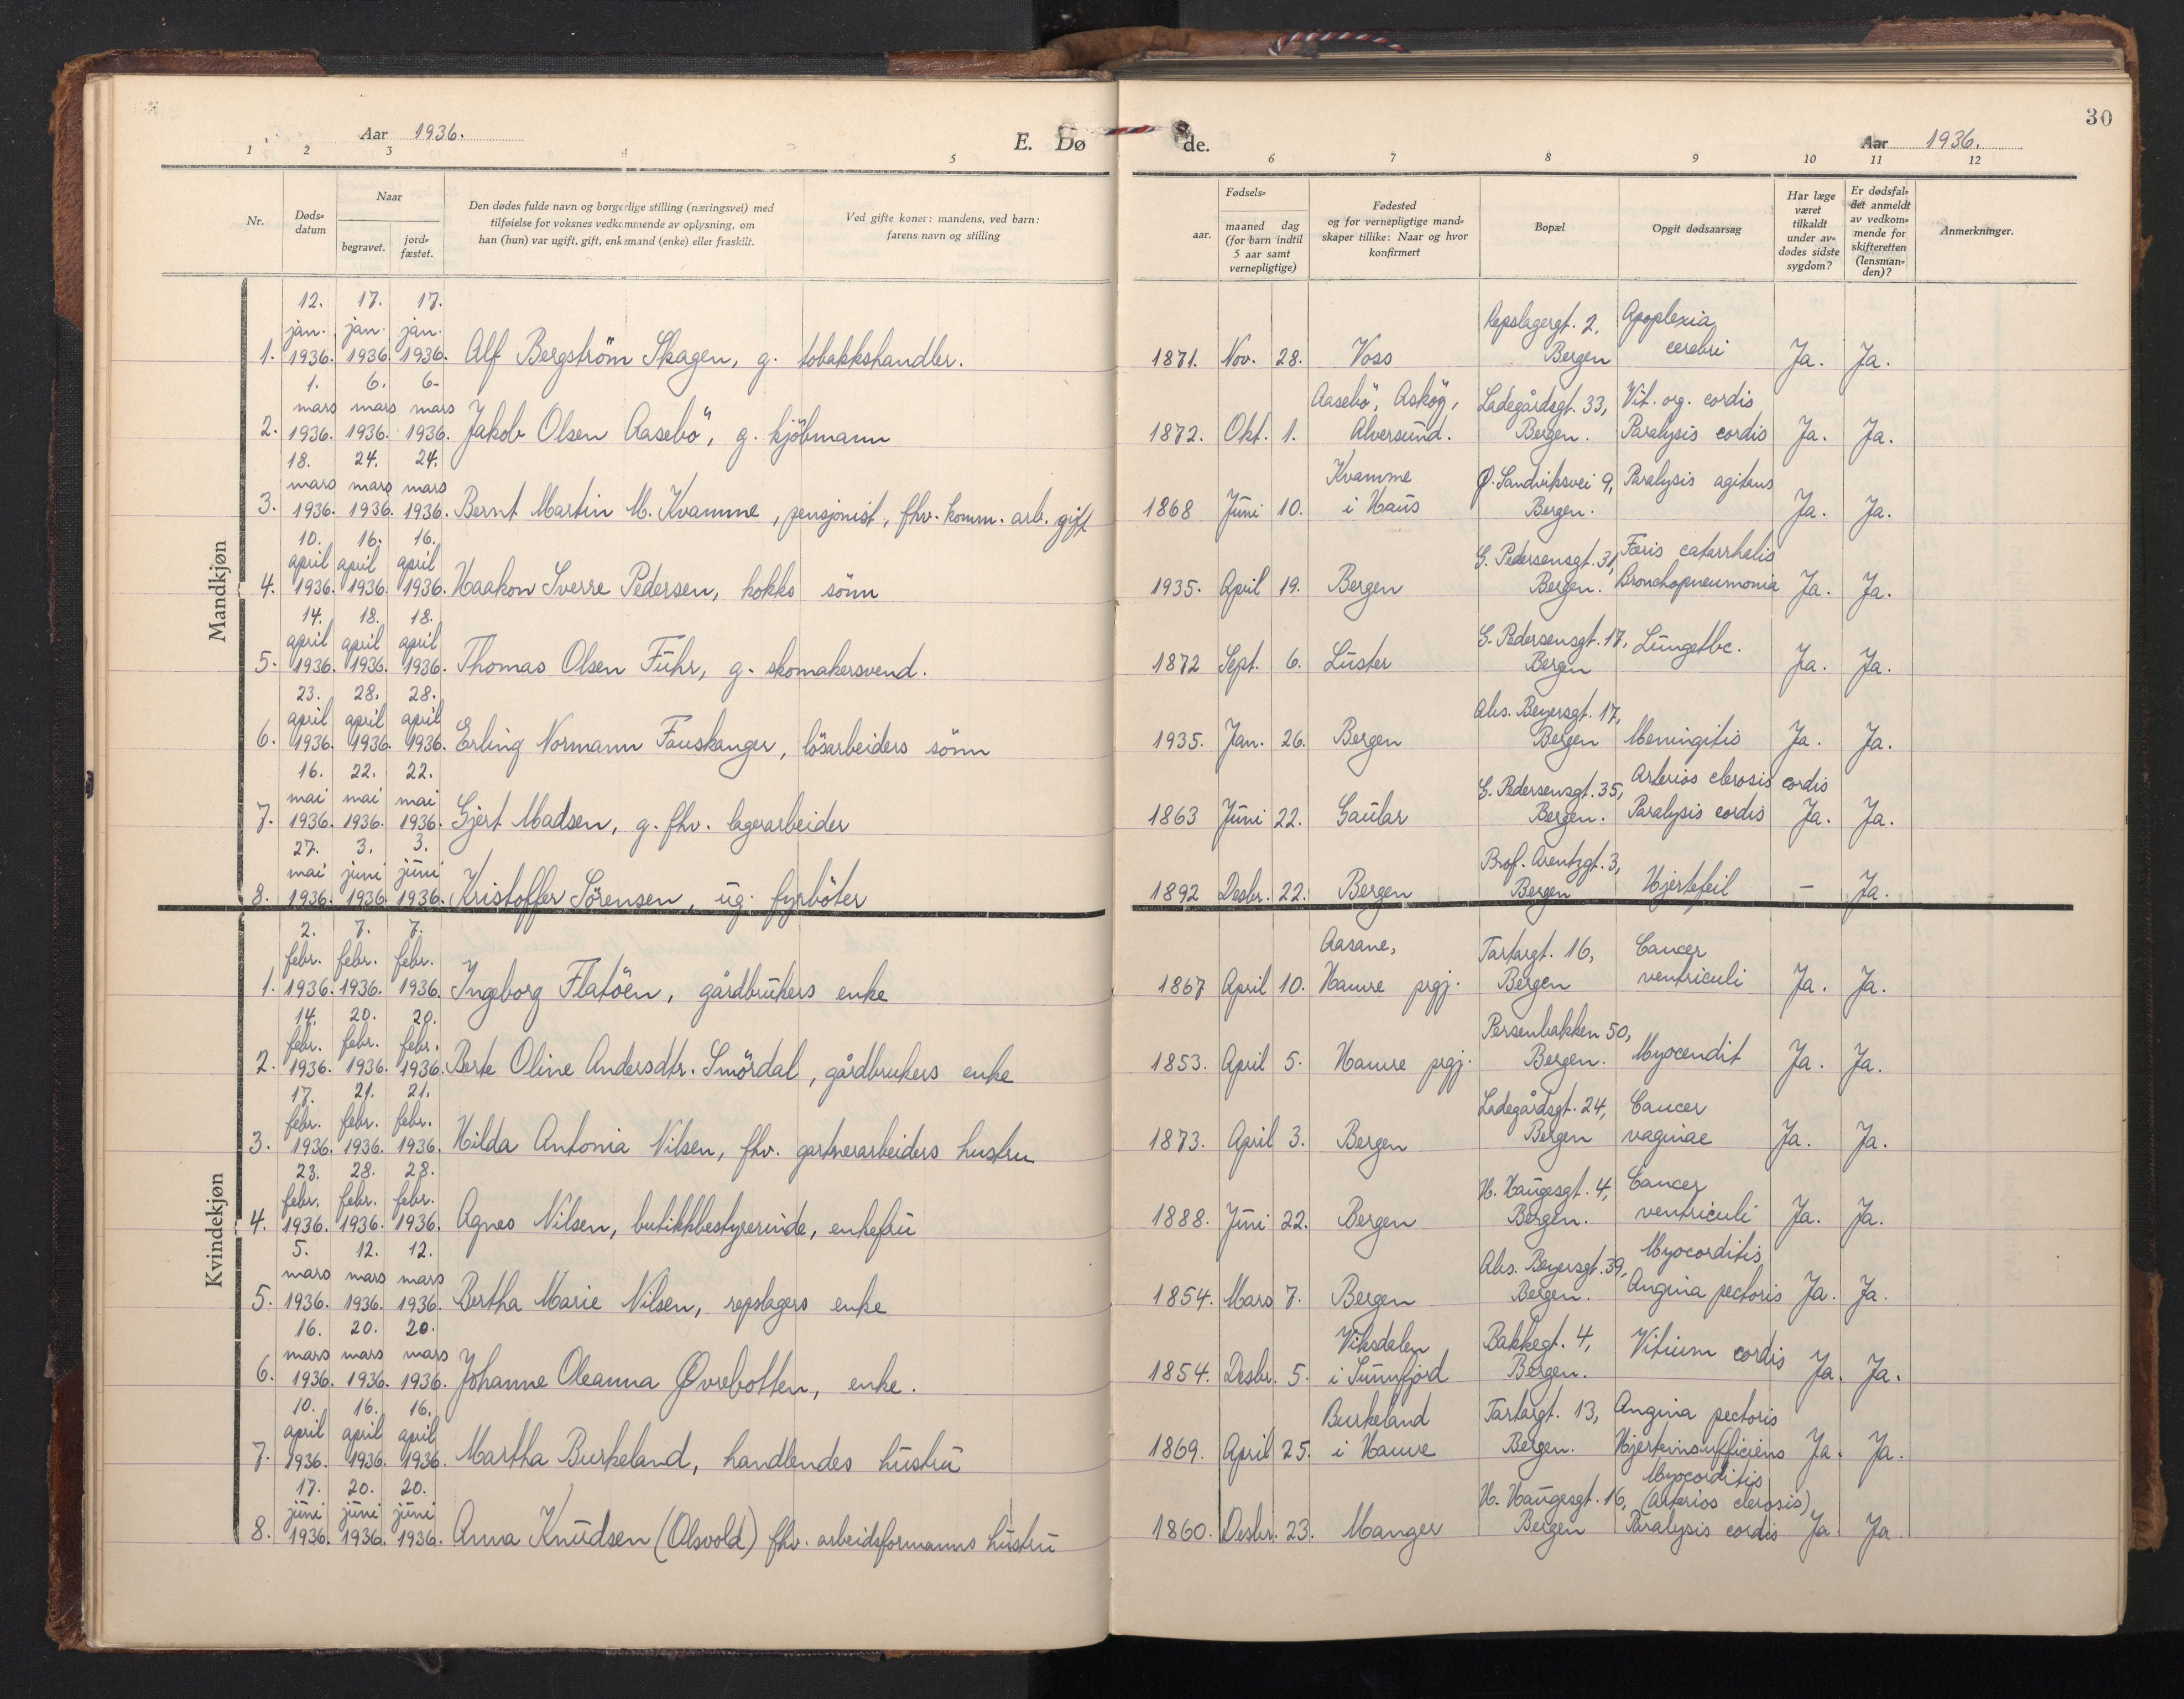 30
Aar 1936.
E. Dø de.
Aar 1936.
1 2 3 4 5 6 7 8 9 10 11 12
Nr.
Døds-
datum
Naar
begravet.
jord-
fæstet.
Den dødes fulde navn og borgerlige stilling (næringsvei) med
tilføielse for voksnes vedkommende av oplysning, om
han (hun) var ugift, gift, enkemand (enke) eller fraskilt.
Ved gifte koner: mandens, ved barn:
farens navn og stilling
Fødsels-
aar.
maaned dag
(for barn indtil
5 aar samt
vernepligtige)
Fødested
og for vernepligtige mand-
skaper tillike: Naar og hvor
konfirmert
Bopæl
Opgit dødsaarsag
Har læge
været
tilkaldt
under av-
dødes sidste
sygdom?
Er dødsfal-
det anmeldt
av vedkom-
mende for
skifteretten
(lensman-
den)?
Anmerkninger.
Mandkjøn
12. 17. 17.
jan. jan. jan. Repslagergt. 2, Apoplexia
1. 1936. 1936. 1936. Alf Bergström Skagen, g. tobakkshandler. 1871. Nov. 28. Voss Bergen cerebri Ja. Ja.
1. 6. 6.
mars mars mars Aasebö, Asköy, Ladegårdsgt. 33, Vit. org. cordis
2. 1936. 1936. 1936. Jakob Olsen Aasebö, g. kjöbmann 1872. Okt. 1. Alversund. Bergen. Paralysis cordis Ja. Ja.
18. 24. 24.
mars mars mars Kvamme Ø. Sandviksvei 9, Paralysis agitans
3. 1936. 1936. 1936. Bernt Martin M. Kvamme, pensjonist, fhv. komm. arb. gift 1868 Juni 10. i Haus Bergen. Ja. Ja.
10. 16. 16.
april april april G. Pedersensgt. 31, catarrhalis
4. 1936. 1936. 1936. Haakon Sverre Pedersen, kokks sönn 1935. April 19. Bergen Bergen. Bronchopneumonia Ja. Ja.
14. 18. 18.
april april april G. Pedersensgt. 17, Lungetbc.
5. 1936. 1936. 1936. Thomas Olsen Fuhr, g. skomakersvend. 1872 Sept. 6. Luster Bergen Ja. Ja.
23. 28. 28.
april april april Abs. Beyersgt. 17,
6. 1936. 1936. 1936. Erling Normann Fauskanger, lösarbeiders sönn 1935. Jan. 26. Bergen Bergen Meningitis Ja. Ja.
16. 22. 22.
mai mai mai G. Pedersensgt. 35, Arterios clerosis cordis
7. 1936. 1936. 1936. Gjert Madsen, g. fhv. lagerarbeider 1863 Juni 22. Gaular Bergen. Paralysis cordis Ja. Ja.
27. 3. 3.
mai juni juni Prof. Arentzgt. 3,
8. 1936. 1936. 1936. Kristoffer Sörensen, ug. fyrböter 1892 Desbr. 22. Bergen Bergen Hjertefeil – Ja.
Kvindekjøn
2. 7. 7.
febr. febr. febr. Aasane, Tartargt. 16, Cancer
1. 1936. 1936. 1936. Ingeborg Flatöen, gårdbrukers enke 1867 April 10. Hamre prgj. Bergen ventriculi Ja. Ja.
14. 20. 20.
febr. febr. febr. Persenbakken 50,
2. 1936. 1936. 1936. Berte Oline Andersdtr. Smördal, gårdbrukers enke 1853. April 5. Hamre prgj. Bergen. Myocendit Ja. Ja.
17. 21. 21.
febr. febr. febr. Ladegårdsgt. 24, Cancer
3. 1936. 1936. 1936. Hilda Antonia Nilsen, fhv. gartnerarbeiders hustru 1873. April 3. Bergen Bergen vaginae Ja. Ja.
23. 28. 28.
febr. febr. febr. H. Haugesgt. 4, Cancer
4. 1936. 1936. 1936. Agnes Nilsen, butikkbestyrerinde, enkefru 1888. Juni 22. Bergen Bergen. ventriculi Ja. Ja.
5. 12. 12.
mars mars mars Abs. Beyersgt. 39, Myocorditis
5. 1936. 1936. 1936. Bertha Marie Nilsen, repslagers enke 1854. Mars 7. Bergen Bergen. Angina pectoris Ja. Ja.
16. 20. 20.
mars mars mars Viksdalen Bakkegt. 4, Vitium cordis
6. 1936. 1936. 1936. Johanne Oleanna Øvrebotten, enke. 1854. Desbr. 5. i Sunnfjord Bergen. Ja. Ja.
10. 16. 16.
april april april Burkeland Tartargt. 13, Angina pectoris
7. 1936. 1936. 1936. Martha Burkeland, handlendes hustru 1869. April 25. i Hamre Bergen. Hjerteinsufficiens Ja. Ja.
17. 20. 20. Myocorditis
juni juni juni H. Haugesgt. 16, (Arterios clerosis)
8. 1936. 1936. 1936. Anna Knudsen (Olsvold) fhv. arbeidsformanns hustru 1860. Desbr. 23. Manger Bergen Paralysis cordis Ja. Ja